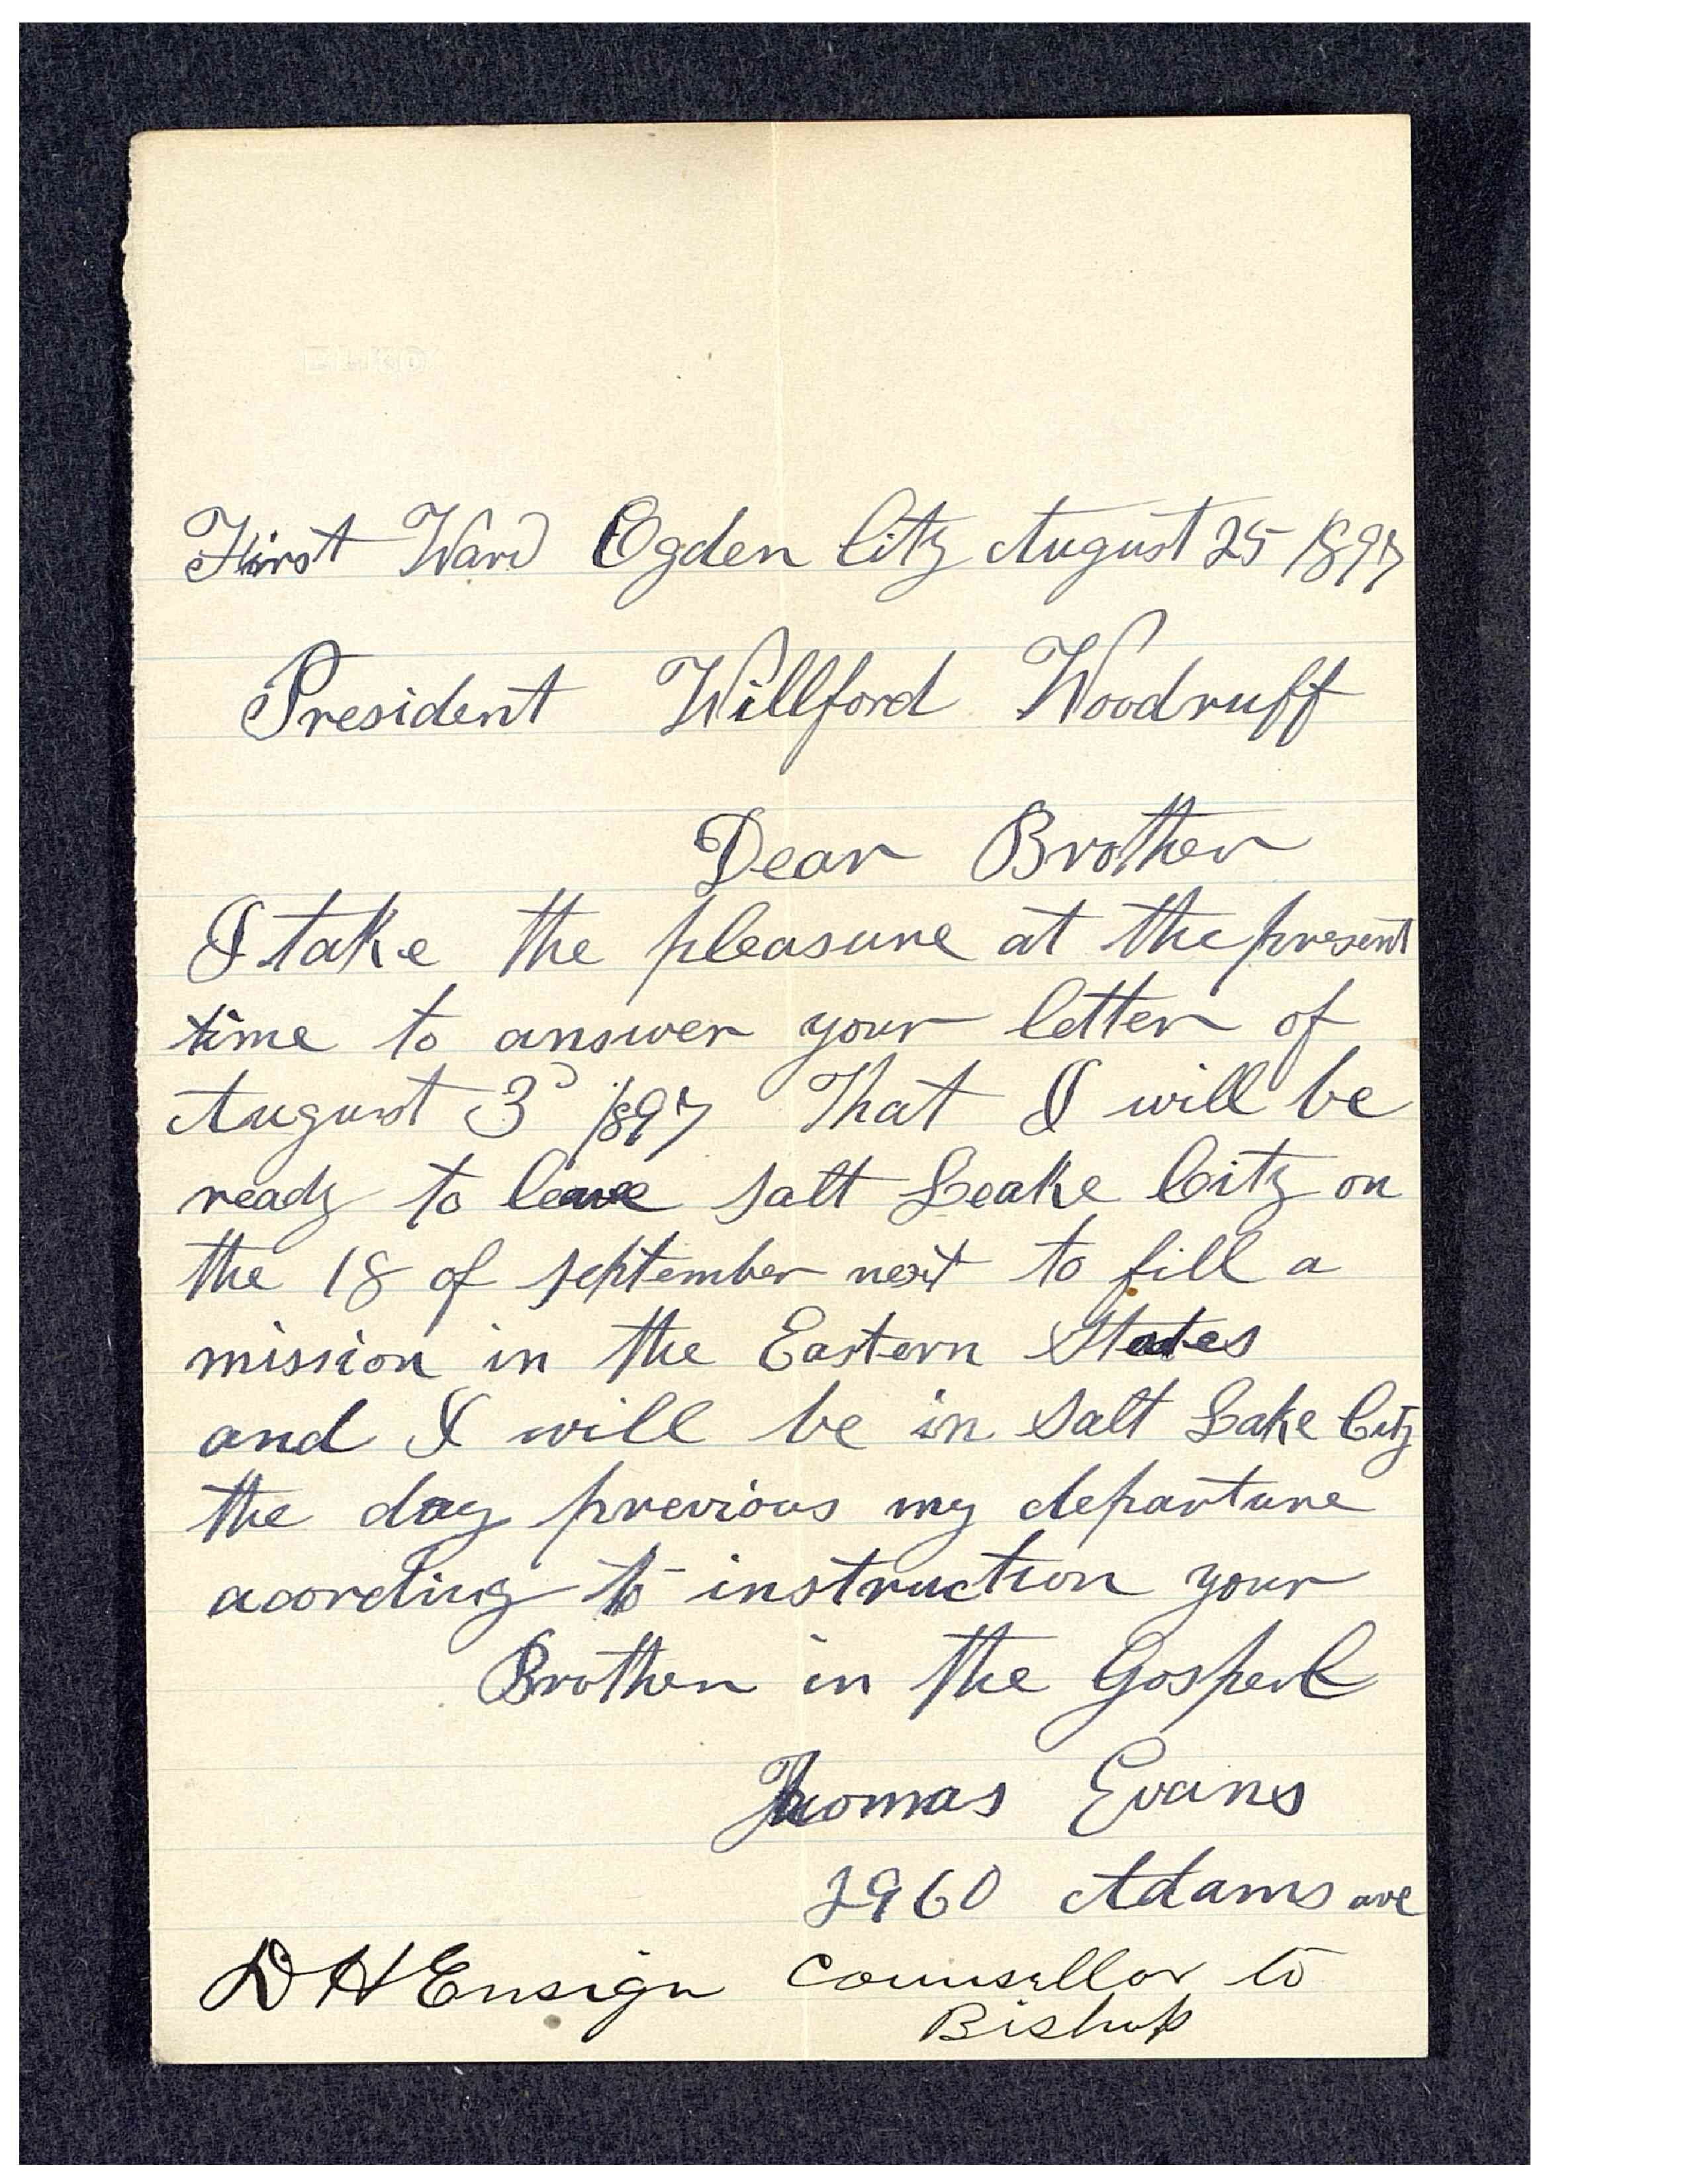 First Ward Ogden City August 25 1897
President Willford Woodruff
Dear Brother
I take the pleasure at the present
time to answer your letter of
August 3d 1897 That I will be
ready to leave Salt Leake City on
the 18 of september next to fill a
mission in the Eastern States
and I will be in Salt Lake City
the day previous my departure
acording to instruction your
Brother in the Gospel
Thomas Evans
2960 Adams ave
D H Ensign Counsellor to
Bishop